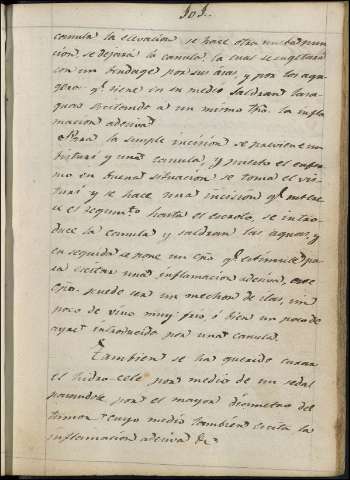 101..
canula la elevacion se hace otra nueba pun
cion, se dejará la canula, la cual se sugetará
con un bendage por sus asas, y por los agu
geros qe. tiene en su medio saldran las a
guas excitando a un mismo tpo. la infla
macion adesiva
Para la simple incision se previene un
bisturi y una canula, y puesto el enfer
mo en buena situacion se toma el vis
turi y se hace una incision qe.
el segumto. hasta el escroto, se intro
duce la canula y saldran las aguas, y
en seguida se pone un cpo. qe. estimule pa
ra excitar una inflamacion adesiva, este
cpo. puede ser un mechon de ilas, un
poco de vino muy frio ó bien un poco de
ayre introducido por una canula.
Tambien se ha querido curar
el hidro-cele por medio de un sedal
pasandole por el mayor diametro del
tumor cuyo medio tambien excita la
inflamacion adesiva &a